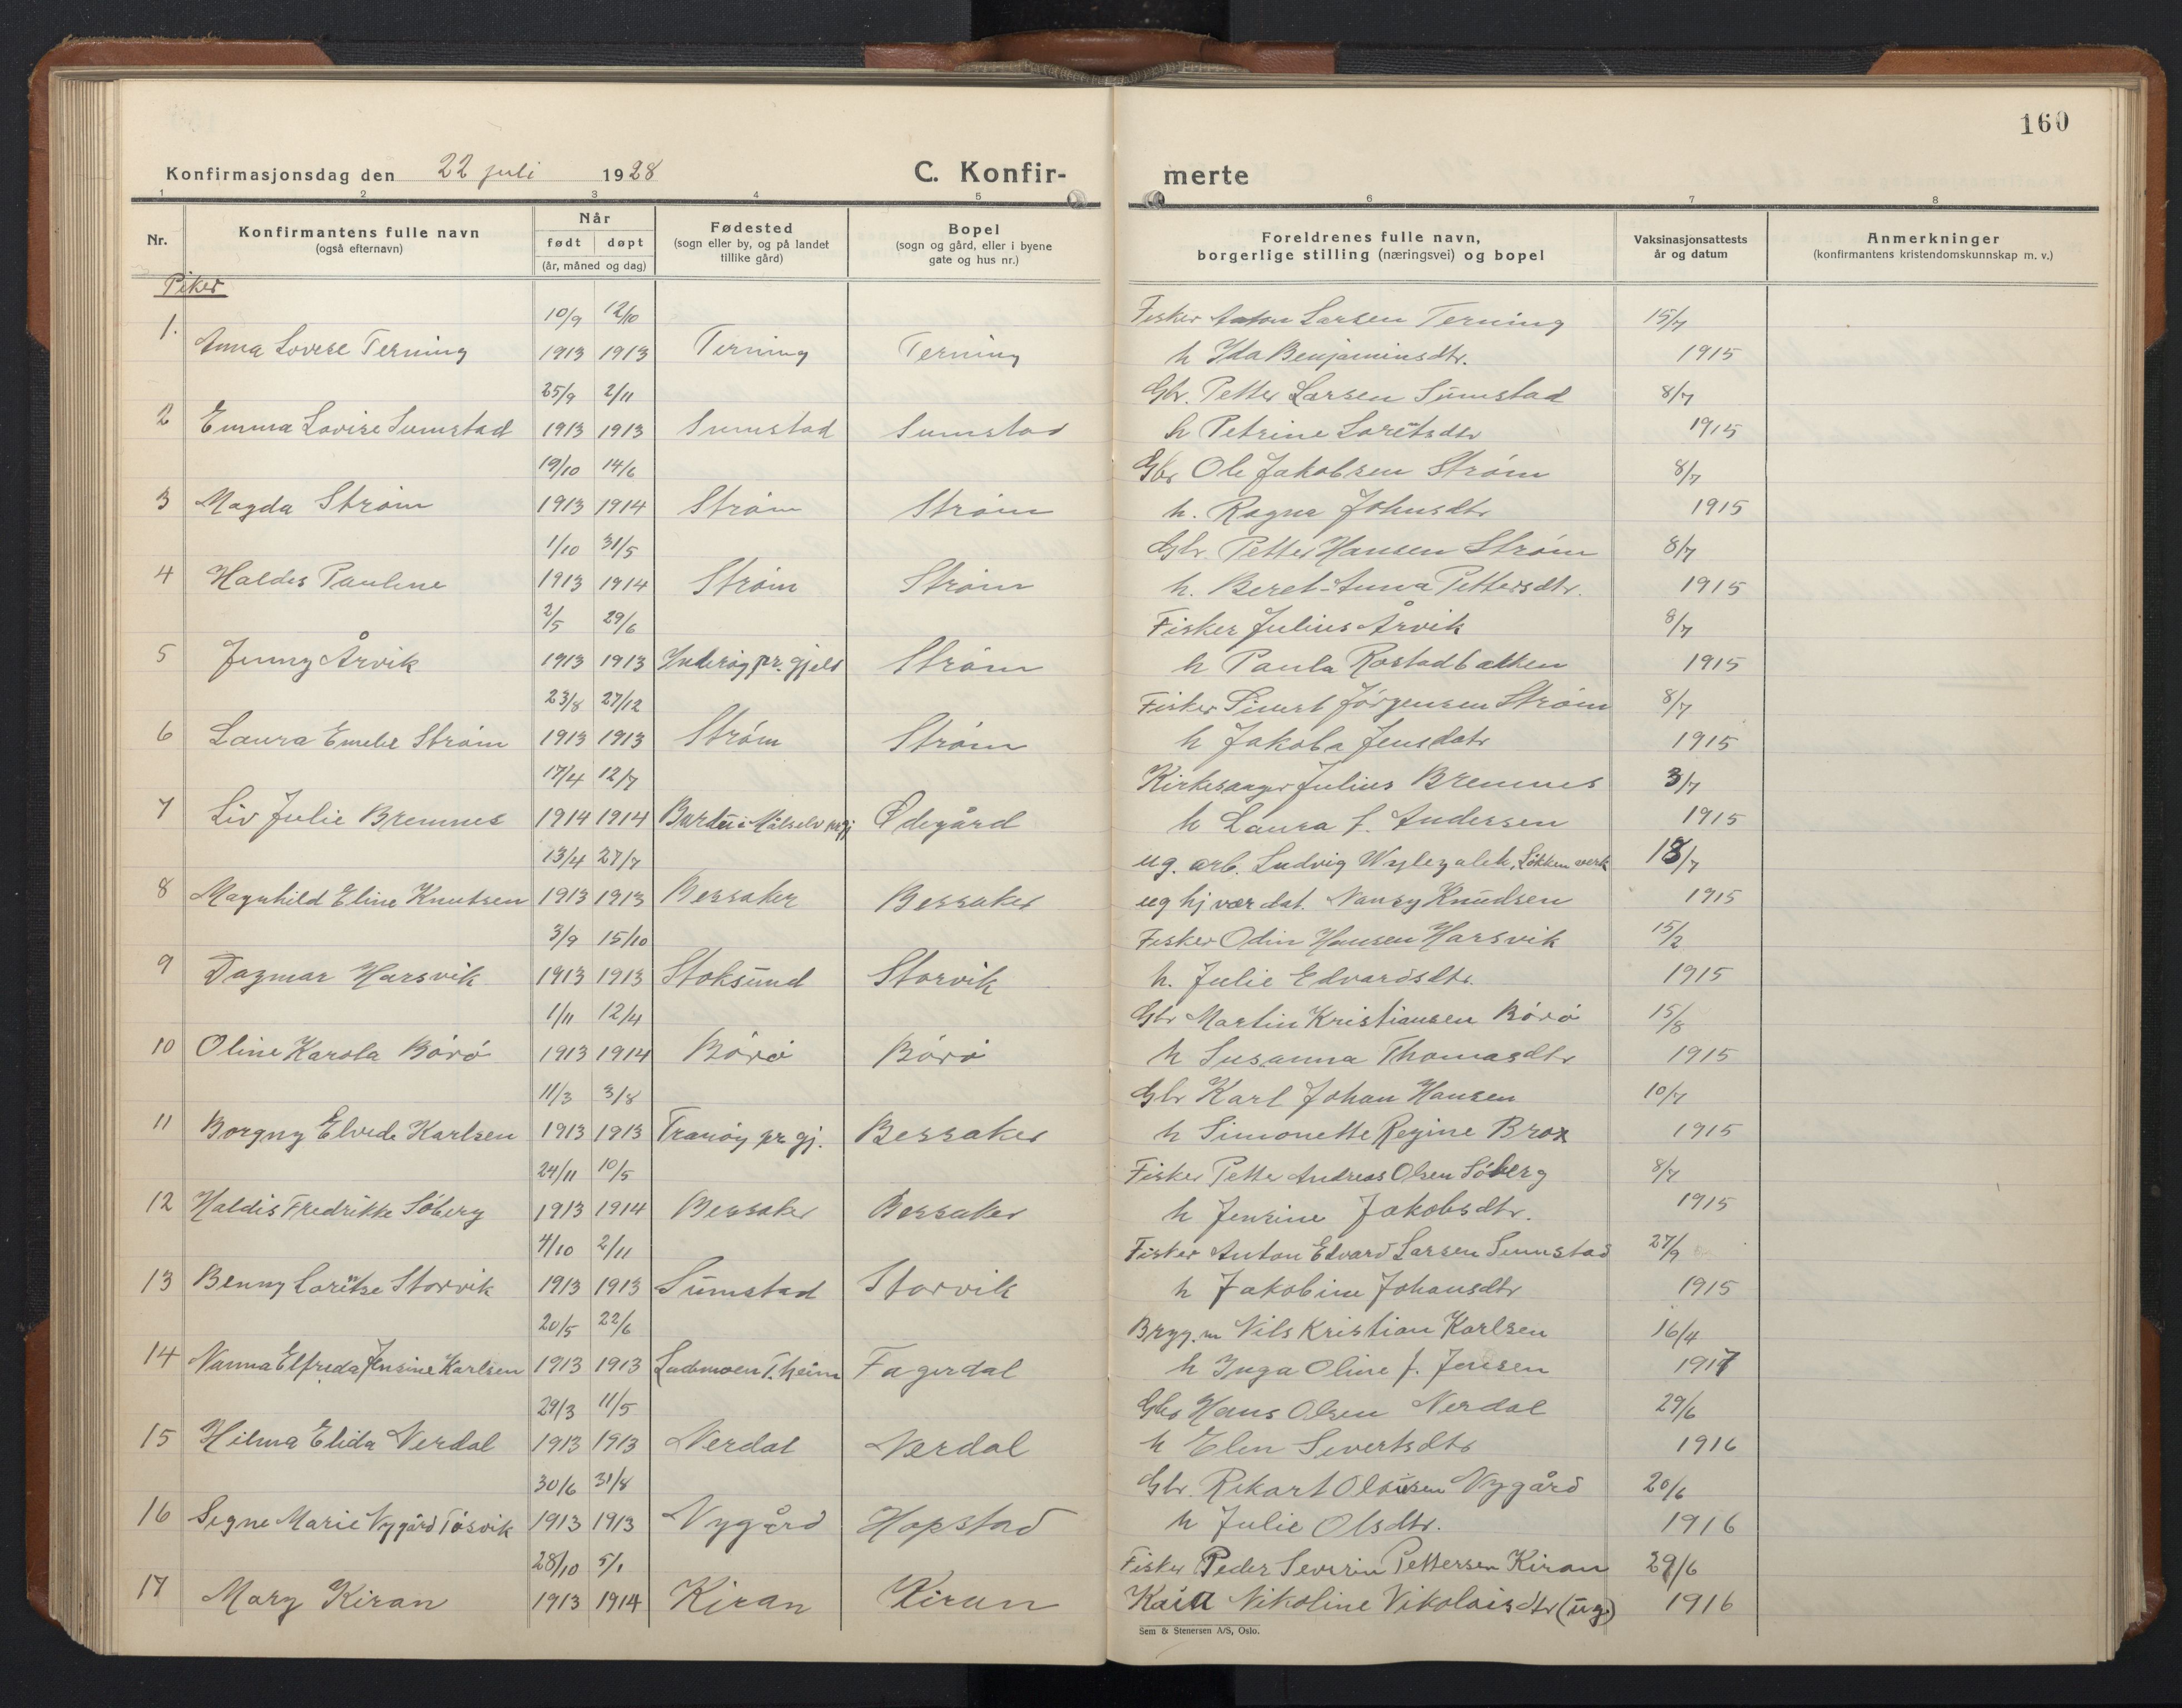 160
Konfirmasjonsdag den 22 juli 1928 C. Konfir- merte
1 2 3 4 5 6 7 8
Nr. Konfirmantens fulle navn (også efternavn) Når født døpt (år, måned og dag) Fødested (sogn eller by, og på landet tillike gård) Bopel (sogn og gård, eller i byene gate og hus nr.) Foreldrenes fulle navn, borgerlige stilling (næringsvei) og bopel Vaksinasjonsattests år og datum Anmerkninger (konfirmantens kristendomskunnskap m. v.)
Piker
10/9 12/10 Fisker Anton Larsen Terning 15/7
1. Anna Lovise Terning 1913 1913 Terning Terning h Ida Benjaminsdtr. 1915
25/9 2/11 Gbr. Petter Larsen Sumstad 8/7
2 Emma Lovise Sumstad 1913 1913 Sumstad Sumstad h Petrine Loretsdtr 1915
19/10 14/6 Gbr Ole Jakobsen Strøm 8/7
3 Magda Strøm 1913 1914 Strøm Strøm h. Ragna Johnsdtr 1915
1/10 31/5 Gbr. Petter Hansen Strøm 8/7
4 Haldis Pauline 1913 1914 Strøm Strøm h. Beret-Anna Pettersdtr. 1915
2/5 29/6 Fisker Julius Årvik 8/7
5 Jenny Årvik 1913 1913 Inderøy pr.gjeld Strøm h Paula Rostadbakken 1915
23/8 27/12 Fisker Sivert Jørgensen Strøm 8/7
6 Laura Emelie Strøm 1913 1913 Strøm Strøm h Jakoba Jensdatr 1915
17/4 12/7 Kirkesanger Julius Bremnes 3/7
7 Liv Julie Bremnes 1914 1914 Bardu i Målselv prgj Ødegård h Laura f. Andersen 1915
13/4 27/7 ug. arb. Ludvig Wylezalek, Løkken verk 18/7
8 Magnhild Eline Knutsen 1913 1913 Bessaker Bessaker ug hj vær dat. Nansy Knudsen 1915
3/9 15/10 Fisker Odin Hansen Harsvik 15/2
9 Dagmar Harsvik 1913 1913 Stoksund Storvik h. Julie Edvardsdtr. 1915
1/11 12/4 Gbr Martin Kristiansen Børø 15/8
10 Oline Karola Børø 1913 1914 Børø Børø h Susanna Thomasdtr 1915
11/3 3/8 Gbr Karl Johan Hansen 10/7
11 Borgny Elvede Karlsen 1913 1913 Tranøy pr gj. Bessaker h Simonette Regine Brox 1915
24/11 10/5 Fisker Petter Andreas Olsen Søberg 8/7
12 Haldis Fredrikke Søberg 1913 1914 Bessaker Bessaker h Jensine Jakobsdtr. 1915
4/10 2/11 Fisker Anton Edvard Larsen Sumstad 27/9
13 Benny Loritse Storvik 1913 1913 Sumstad Storvik h Jakobine Johansdtr 1915
20/5 22/6 Bryg.m Nils Kristian Karlsen 16/4
14 Nanna Elfreda Jensine Karlsen 1913 1913 Lademoen T.heim Fagerdal h Inga Oline f. Jensen 1917
29/3 11/5 Gbr Hans Olsen Nerdal 29/6
15 Hilma Elida Nerdal 1913 1913 Nerdal Nerdal h Elen Severtsdtr 1916
30/6 31/8 Gbr. Rikart Olausen Nygård 20/6
16 Segne Marie Nygård Tøsvik 1913 1913 Nygård Hopstad h Julie Olsdtr. 1916
28/10 5/1 Fisker Peder Severin Pettersen Kiran 29/6
17 Mary Kiran 1913 1914 Kiran Kiran Kaia Nikoline Nikolaisdtr (ug) 1916
Sem & Stenersen A/S, Oslo.